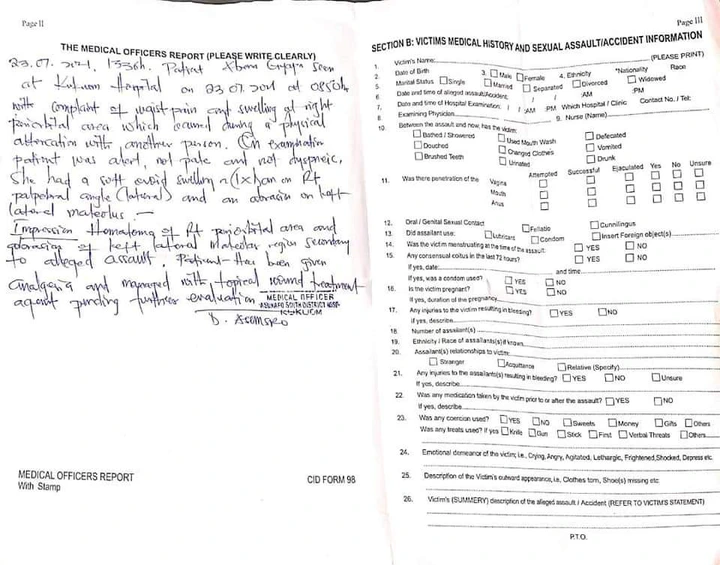 Page II
THE MEDICAL OFFICERS REPORT (PLEASE WRITE CLEARLY)
23.07.2021, 1336h. Patient seen
at Hospital on 23.07.2021 at 0850h
with complaint of waist pain and swelling at right
periorbital area which occured during a physical
altercation with another person. On examination
patient was alert, not pale and not dyspneic,
She had a soft ovoid swelling on Rt
palpebral angle (lateral) and an abrasion on left
lateral
Impression Hematoma of Rt periorbital area and
abrasion of left lateral region secondary
to alleged assault. Patient has been given
analgesia and managed with topical wound treatment
agent pending further evaluation
MEDICAL OFFICER
ASUNAFO SOUTH DISTRICT HOSP.
KUKUOM
MEDICAL OFFICERS REPORT
With Stamp
CID FORM 98
Page III
SECTION B: VICTIMS MEDICAL HISTORY AND SEXUAL ASSAULT/ACCIDENT INFORMATION
(PLEASE PRINT)
1. Victim's Name:
2. Date of Birth 3. Male Female 4. Ethnicity *Nationality Race
5. Marital Status Single Married Separated Divorced Widowed
6. Date and time of alleged assault/Accident. / / :AM :PM
7. Date and time of Hospital Examination: / / :AM :PM Which Hospital / Clinic Contact No./ Tel:
8. Examining Physician 9. Nurse (Name)
10. Between the assault and now, has the victim:
Bathed / Showered Used Mouth Wash Defecated
Douched Changed Clothes Vomited
Brushed Teeth Urinated Drunk
11. Was there penetration of the Attempted Successful Ejaculated Yes No Unsure
Vagina
Mouth
Anus
12. Oral / Genital Sexual Contact Fellatio Cunnilingus
13. Did assailant use: Lubricant Condom Insert Foreign object(s)
14. Was the victim menstruating at the time of the assault: YES NO
15. Any consensual coitus in the last 72 hours? YES NO
If yes, date: and time
If yes, was a condom used? YES NO
16. Is the victim pregnant? YES NO
If yes, duration of the pregnancy
17. Any injuries to the victim resulting in bleeding? YES NO
If yes, describe
18. Number of assailant(s)
19. Ethnicity / Race of assailants(s) if known
20. Assailant(s) relationships to victim:
Stranger Acquittance Relative (Specify)
21. Any injuries to the assailant(s) resulting in bleeding? YES NO Unsure
If yes, describe
22. Was any medication taken by the victim prior to or after the assault? YES NO
If yes, describe
23. Was any coercion used? YES NO Sweets Money Gifts Others
Was any treats used? if yes Knife Gun Stick First Verbal Threats Others
24. Emotional demeanor of the victim; i.e., Crying, Angry, Agitated, Lethargic, Frightened, Shocked, Depress etc.
25. Description of the Victim's outward appearance, i.e., Clothes torn, Shoe(s) missing etc
26. Victim's (SUMMERY) description of the alleged assault / Accident (REFER TO VICTIM'S STATEMENT)
P.T.O.